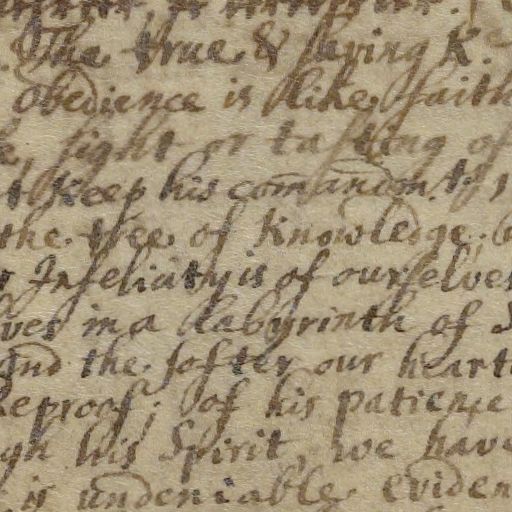 The true & saving K.e
obedience is like faith
sight or tasting of
keep his comandm.ts
the tree of Knowledge;
Infelicity is of ourselves
ves in a labyrinth of
and the softer our heart
eproof; of his patience
gh his Spirit, we have
is undeniable eviden